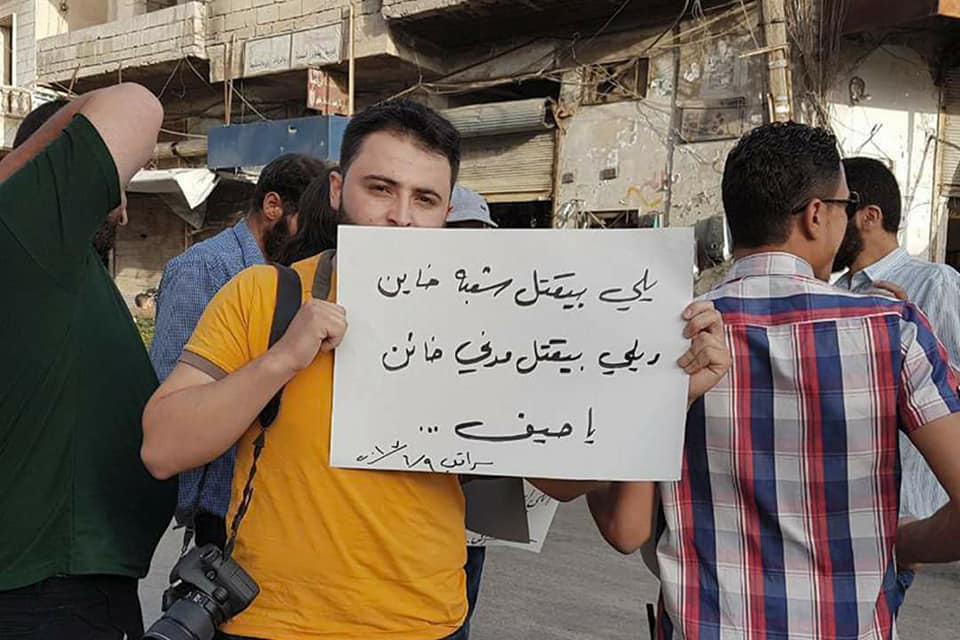 يلي بيقتل شعبه خاين
ويلي بيقتل مدني خائن
يا حيف ...
سراقب ٦/٩/٢٠١٧